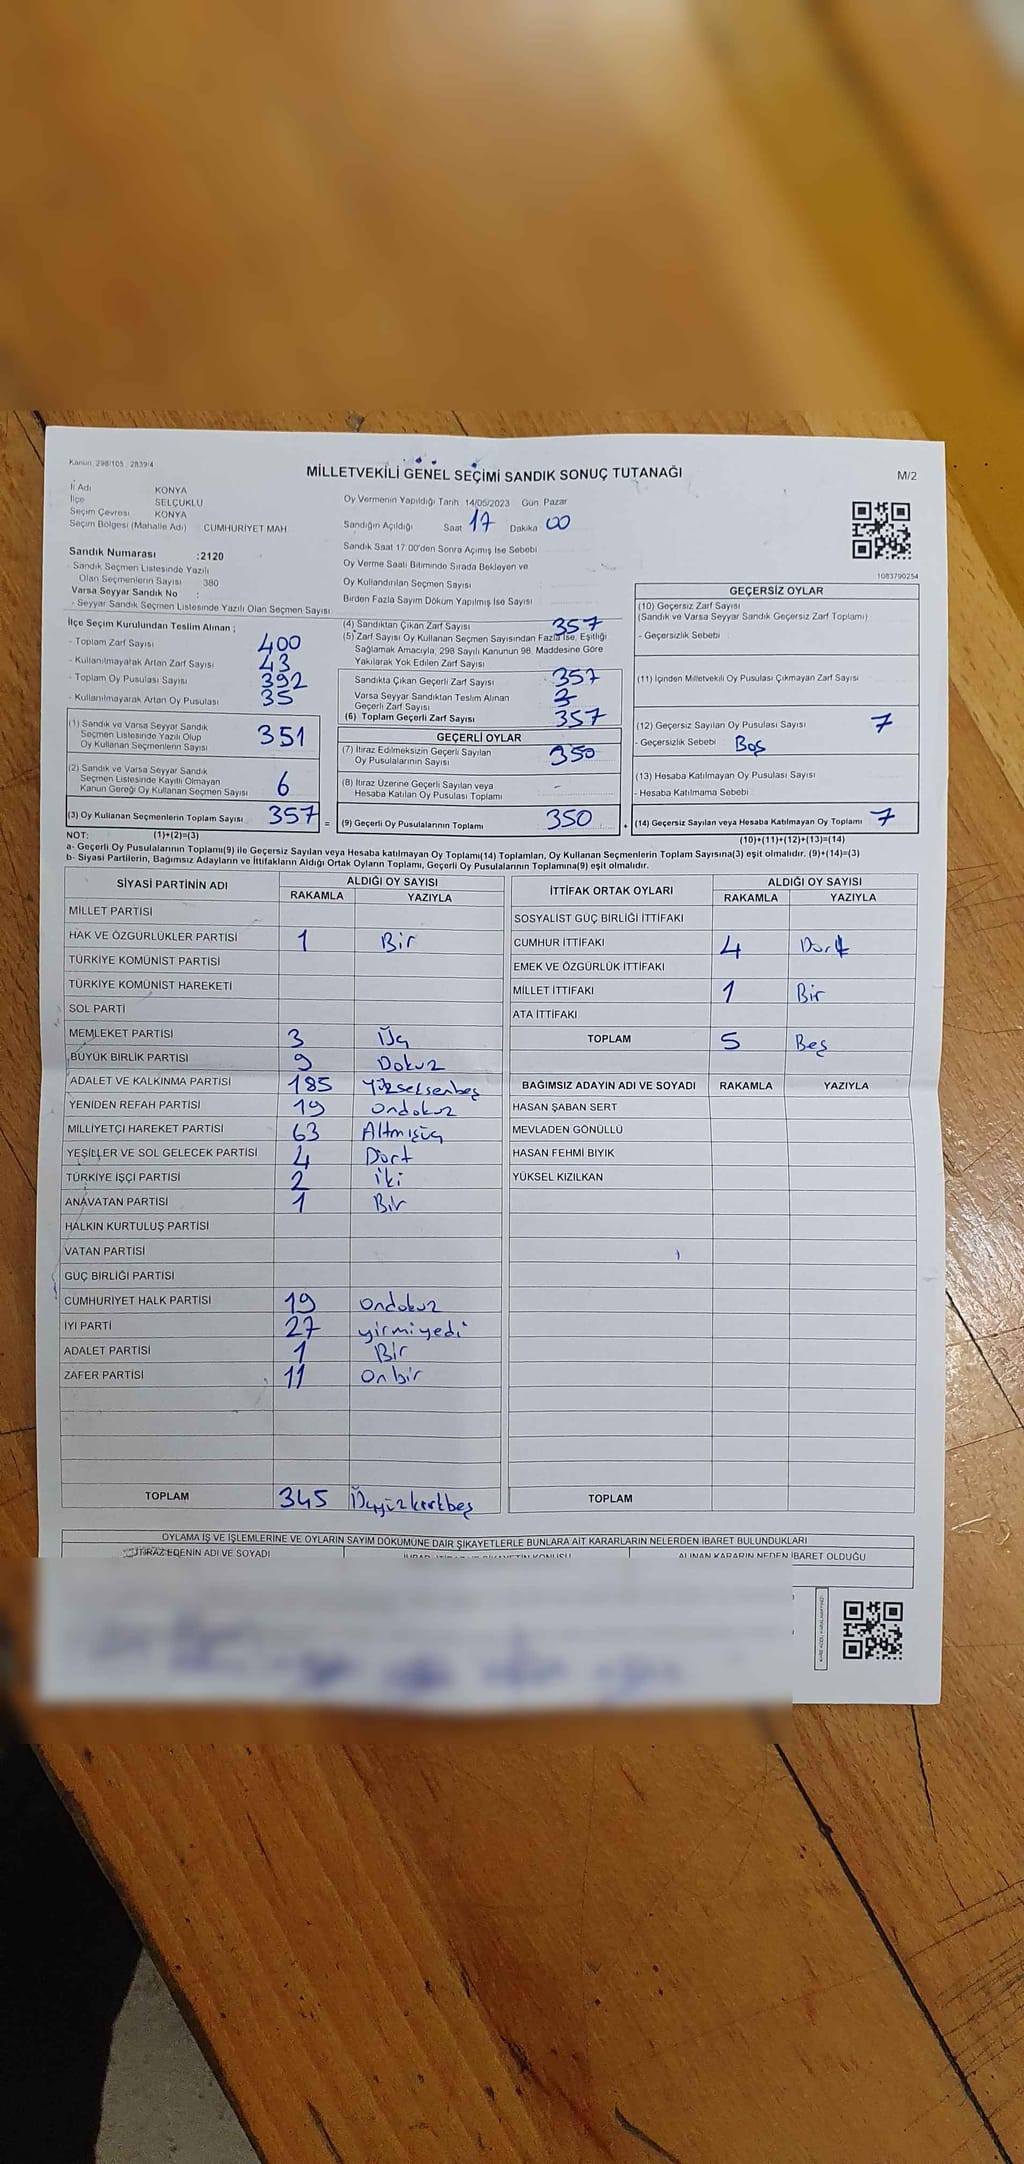 Kanun: 298/105, 2839/4
MİLLETVEKİLİ GENEL SEÇİMİ SANDIK SONUÇ TUTANAĞI
M/2
İl Adı KONYA
İlçe SELÇUKLU
Seçim Çevresi KONYA
Seçim Bölgesi (Mahalle Adı) CUMHURİYET MAH
Oy Vermenin Yapıldığı Tarih 14/05/2023 Gün Pazar
Sandığın Açıldığı Saat 17 Dakika 00
Sandık Saat 17 00'den Sonra Açımış İse Sebebi
Oy Verme Saati Bitiminde Sırada Bekleyen ve
Oy Kullandırılan Seçmen Sayısı
Birden Fazla Sayım Döküm Yapılmış İse Sayısı
1083790254
Sandık Numarası :2120
- Sandık Seçmen Listesinde Yazılı
Olan Seçmenlerin Sayısı 380
Varsa Seyyar Sandık No :
- Seyyar Sandık Seçmen Listesinde Yazılı Olan Seçmen Sayısı
İlçe Seçim Kurulundan Teslim Alınan ;
- Toplam Zarf Sayısı 400
- Kullanılmayarak Artan Zarf Sayısı 43
- Toplam Oy Pusulası Sayısı 392
- Kullanılmayarak Artan Oy Pusulası 35
(1) Sandık ve Varsa Seyyar Sandık
Seçmen Listesinde Yazılı Olup
Oy Kullanan Seçmenlerin Sayısı 351
(2) Sandık ve Varsa Seyyar Sandık
Seçmen Listesinde Kayıtlı Olmayan
Kanun Gereği Oy Kullanan Seçmen Sayısı 6
(3) Oy Kullanan Seçmenlerin Toplam Sayısı 357 =
(4) Sandıktan Çıkan Zarf Sayısı 357
(5) Zarf Sayısı Oy Kullanan Seçmen Sayısından Fazla İse, Eşitliği
Sağlamak Amacıyla, 298 Sayılı Kanunun 98. Maddesine Göre
Yakılarak Yok Edilen Zarf Sayısı
Sandıkta Çıkan Geçerli Zarf Sayısı 357
Varsa Seyyar Sandıktan Teslim Alınan
Geçerli Zarf Sayısı
(6) Toplam Geçerli Zarf Sayısı 357
GEÇERLİ OYLAR
(7) İtiraz Edilmeksizin Geçerli Sayılan
Oy Pusulalarının Sayısı 350
(8) İtiraz Üzerine Geçerli Sayılan veya
Hesaba Katılan Oy Pusulası Toplamı -
(9) Geçerli Oy Pusulalarının Toplamı 350 +
GEÇERSİZ OYLAR
(10) Geçersiz Zarf Sayısı
(Sandık ve Varsa Seyyar Sandık Geçersiz Zarf Toplamı)
- Geçersizlik Sebebi
(11) İçinden Milletvekili Oy Pusulası Çıkmayan Zarf Sayısı
(12) Geçersiz Sayılan Oy Pusulası Sayısı 7
- Geçersizlik Sebebi Boş
(13) Hesaba Katılmayan Oy Pusulası Sayısı
- Hesaba Katılmama Sebebi
(14) Geçersiz Sayılan veya Hesaba Katılmayan Oy Toplamı 7
NOT: (1)+(2)=(3)
(10)+(11)+(12)+(13)=(14)
a- Geçerli Oy Pusulalarının Toplamı(9) ile Geçersiz Sayılan veya Hesaba katılmayan Oy Toplamı(14) Toplamları, Oy Kullanan Seçmenlerin Toplam Sayısına(3) eşit olmalıdır. (9)+(14)=(3)
b- Siyasi Partilerin, Bağımsız Adayların ve İttifakların Aldığı Ortak Oyların Toplamı, Geçerli Oy Pusulalarının Toplamına(9) eşit olmalıdır.
SİYASİ PARTİNİN ADI ALDIĞI OY SAYISI
RAKAMLA YAZIYLA
MİLLET PARTİSİ
HAK VE ÖZGÜRLÜKLER PARTİSİ 1 Bir
TÜRKİYE KOMÜNİST PARTİSİ
TÜRKİYE KOMÜNİST HAREKETİ
SOL PARTİ
MEMLEKET PARTİSİ 3 Üç
BÜYÜK BİRLİK PARTİSİ 9 Dokuz
ADALET VE KALKINMA PARTİSİ 185 Yükseksenbeş
YENİDEN REFAH PARTİSİ 19 ondokuz
MİLLİYETÇİ HAREKET PARTİSİ 63 Altmışüç
YEŞİLLER VE SOL GELECEK PARTİSİ 4 Dört
TÜRKİYE İŞÇİ PARTİSİ 2 iki
ANAVATAN PARTİSİ 1 Bir
HALKIN KURTULUŞ PARTİSİ
VATAN PARTİSİ
GÜÇ BİRLİĞİ PARTİSİ
CUMHURİYET HALK PARTİSİ 19 ondokuz
İYİ PARTİ 27 yirmiyedi
ADALET PARTİSİ 1 Bir
ZAFER PARTİSİ 11 onbir
TOPLAM 345 Üçyüzkırkbeş
İTTİFAK ORTAK OYLARI ALDIĞI OY SAYISI
RAKAMLA YAZIYLA
SOSYALİST GÜÇ BİRLİĞİ İTTİFAKI
CUMHUR İTTİFAKI 4 Dört
EMEK VE ÖZGÜRLÜK İTTİFAKI
MİLLET İTTİFAKI 1 Bir
ATA İTTİFAKI
TOPLAM 5 Beş
BAĞIMSIZ ADAYIN ADI VE SOYADI RAKAMLA YAZIYLA
HASAN ŞABAN SERT
MEVLADEN GÖNÜLLÜ
HASAN FEHMİ BIYIK
YÜKSEL KIZILKAN
TOPLAM
OYLAMA İŞ VE İŞLEMLERİNE VE OYLARIN SAYIM DÖKÜMÜNE DAİR ŞİKAYETLERLE BUNLARA AİT KARARLARIN NELERDEN İBARET BULUNDUKLARI
İTİRAZ EDENİN ADI VE SOYADI
ALINAN KARARIN NEDEN İBARET OLDUĞU